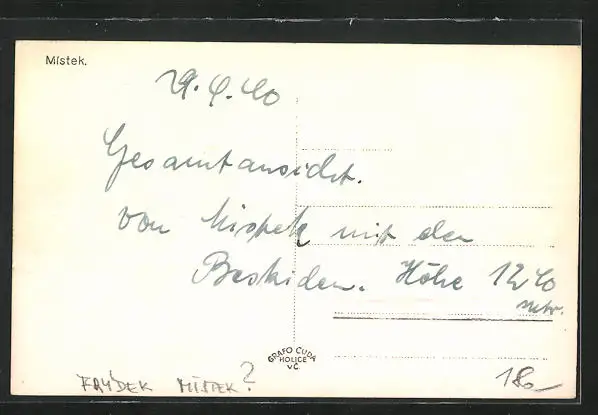 Místek.
29.9.40
Gesamtansicht.
von Mistek mit den
Beskiden. Höhe 1240
metr.
GRAFO ČUDA
HOLICE
V Č.
FRÝDEK MÍSTEK?
180